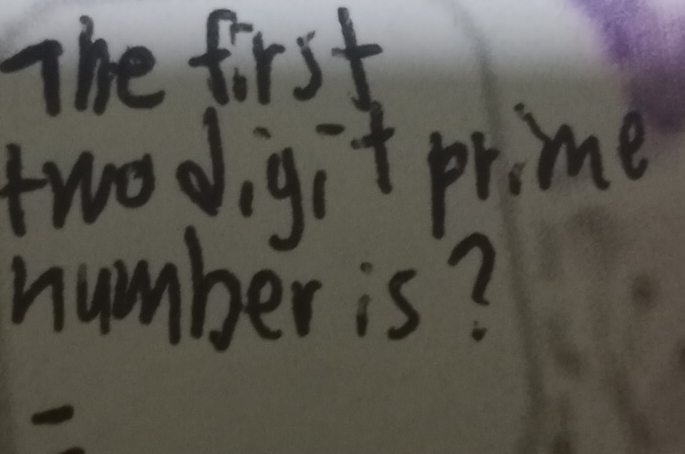 The first
two digit prime
number is?
=